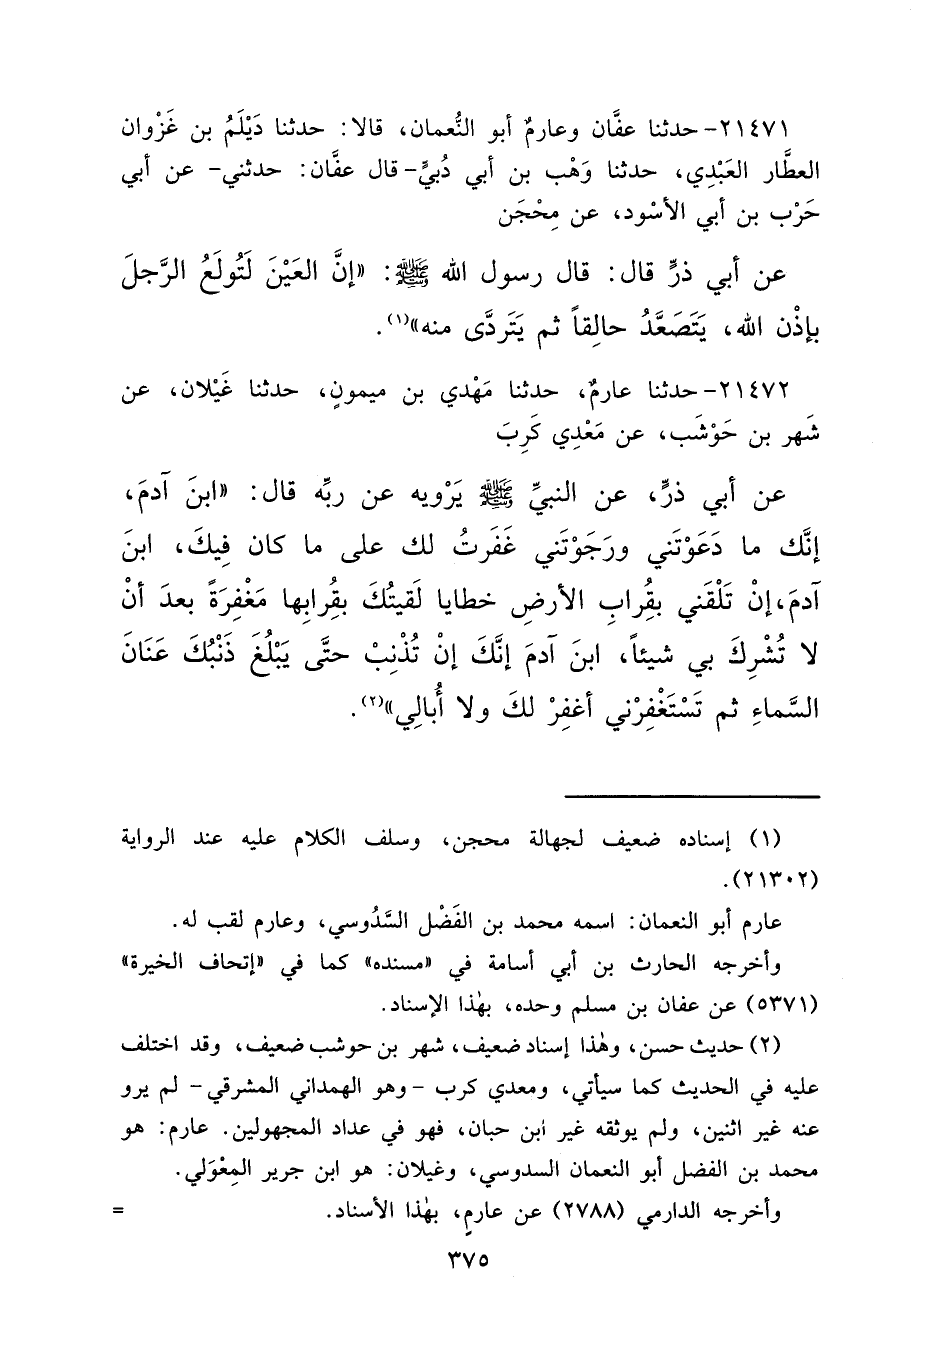 ٢١٤٧١- حدثنا عفَّان وعارمٌ أبو النُّعمان، قالا: حدثنا دَيْلَمُ بن غَزْوان
العطَّار العَبْدِي، حدثنا وَهْب بن أبي دُبيٍّ- قال عفَّان: حدثني- عن أبي
حَرْب بن أبي الأسْود، عن مِحْجَن
عن أبي ذرٍّ قال: قال رسول الله ﷺ: «إنَّ العَيْنَ لَتُولَعُ الرَّجلَ
بإذْن الله، يَتَصَعَّدُ حالِقاً ثم يَتَردَّى منه»(١).
٢١٤٧٢- حدثنا عارمٌ، حدثنا مَهْدي بن ميمونٍ، حدثنا غَيْلان، عن
شَهر بن حَوْشَب، عن مَعْدِي كَرِبَ
عن أبي ذرٍّ، عن النبيِّ ﷺ يَرْويه عن ربِّه قال: «ابنَ آدمَ،
إنَّك ما دَعَوْتَني ورَجَوْتَني غَفَرتُ لك على ما كان فِيكَ، ابنَ
آدمَ،إنْ تَلْقَني بقُِرابِ الأرضِ خطايا لَقيتُكَ بقُِرابِها مَغْفِرَةً بعدَ أنْ
لا تُشْرِكَ بي شيئاً، ابنَ آدمَ إنَّكَ إنْ تُذْنِبْ حتَّى يَبْلُغَ ذَنْبُكَ عَنَانَ
السَّماءِ ثم تَسْتَغْفِرْني أغفِرْ لكَ ولا أُبالِي»(٢).
(١) إسناده ضعيف لجهالة محجن، وسلف الكلام عليه عند الرواية
(٢١٣٠٢).
عارم أبو النعمان: اسمه محمد بن الفَضْل السَّدُوسي، وعارم لقب له.
وأخرجه الحارث بن أبي أسامة في «مسنده» كما في «إتحاف الخيرة»
(٥٣٧١) عن عفان بن مسلم وحده، بهٰذا الإسناد.
(٢) حديث حسن، وهٰذا إسناد ضعيف، شهر بن حوشب ضعيف، وقد اختلف
عليه في الحديث كما سيأتي، ومعدي كرب -وهو الهمداني المشرقي- لم يرو
عنه غير اثنين، ولم يوثقه غير ابن حبان، فهو في عداد المجهولين. عارم: هو
محمد بن الفضل أبو النعمان السدوسي، وغيلان: هو ابن جرير المِعْوَلي.
وأخرجه الدارمي (٢٧٨٨) عن عارمٍ، بهٰذا الأسناد. =
٣٧٥